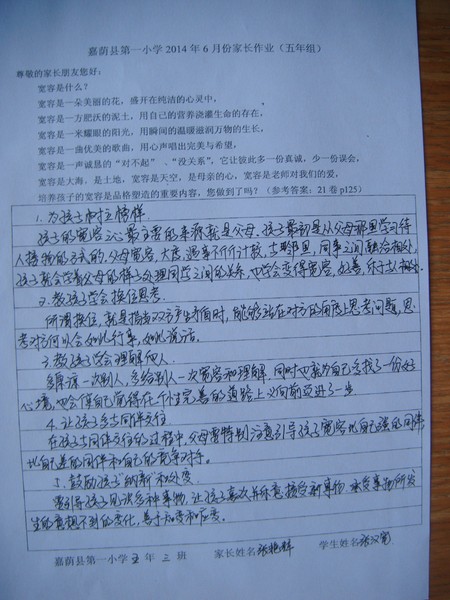 嘉荫县第一小学 2014 年 6 月份家长作业（五年组）
尊敬的家长朋友您好：
宽容是什么？
宽容是一朵美丽的花，盛开在纯洁的心灵中，
宽容是一方肥沃的泥土，用自己的营养浇灌生命的存在，
宽容是一米耀眼的阳光，用瞬间的温暖滋润万物的生长，
宽容是一曲优美的歌曲，用心声唱出完美与希望，
宽容是一声诚恳的“对不起”、“没关系”，它让彼此多一份真诚，少一份误会，
宽容是大海，是土地，宽容是天空，是母亲的心，宽容是老师对我们的爱，
培养孩子的宽容是品格塑造的重要内容，您做到了吗？（参考答案：21 卷 p125）
1. 为孩子树立榜样
孩子的宽容心最主要的来源就是父母，孩子最初是从父母那里学习待
人接物的方式的，父母宽容，大度，遇事不斤斤计较，与邻里，同事之间融洽相处，
孩子就会学着父母的样子处理同学之间的关系，也学会变得宽容，友善，乐于与人相处。
2. 教孩子学会换位思考.
所谓换位，就是指当双方产生矛盾时，能够站在对方的角度上思考问题，思
考对方何以会如此行事，如此说话。
3. 教孩子学会理解他人
多原谅一次别人，多给别人一次宽容和理解，同时也就为自己多找了一份好
心境，也会使自己觉得在个性完善的道路上又向前迈进了一步
4. 让孩子多与同伴交往
在孩子与同伴交往的过程中，父母需特别注意引导孩子宽容比自己强的同伴
比自己差的同伴和自己的竞争对手。
5. 鼓励孩子纳新和处变
要引导孩子见识多种事物，让孩子喜欢并乐意接受新事物，承受事物所发
生的意想不到的变化，善于知变和应变。
嘉荫县第一小学 五 年 三 班 家长姓名 张艳 学生姓名 张汉